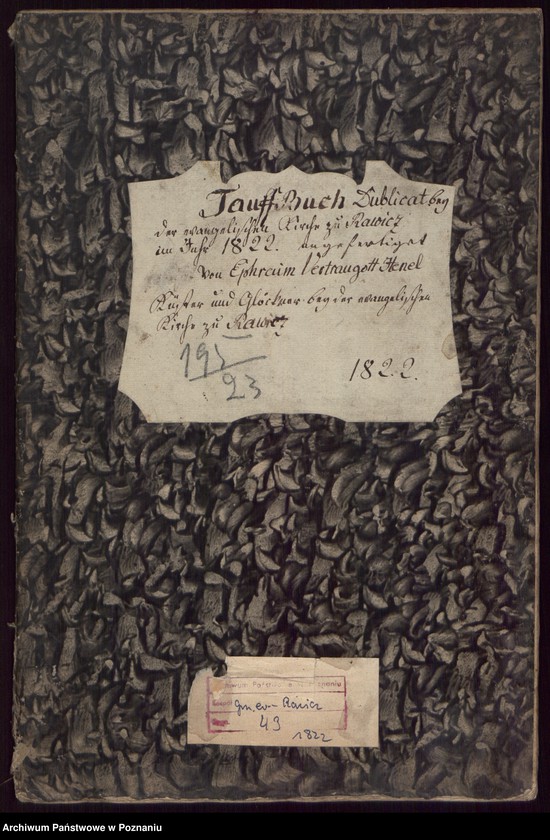 Tauff Buch Dublicat bey
der evangelischen Kirche zu Rawicz
im Jahr 1822. angefertiget
von Ephreim Vertraugott Henel
Küster und Glöckner bey der evangelischen
Kirche zu Rawicz
195
23
1822.
Archiwum Państwowe w Poznaniu
Gm. ev - Rawicz
43
1822
Archiwum Państwowe w Poznaniu